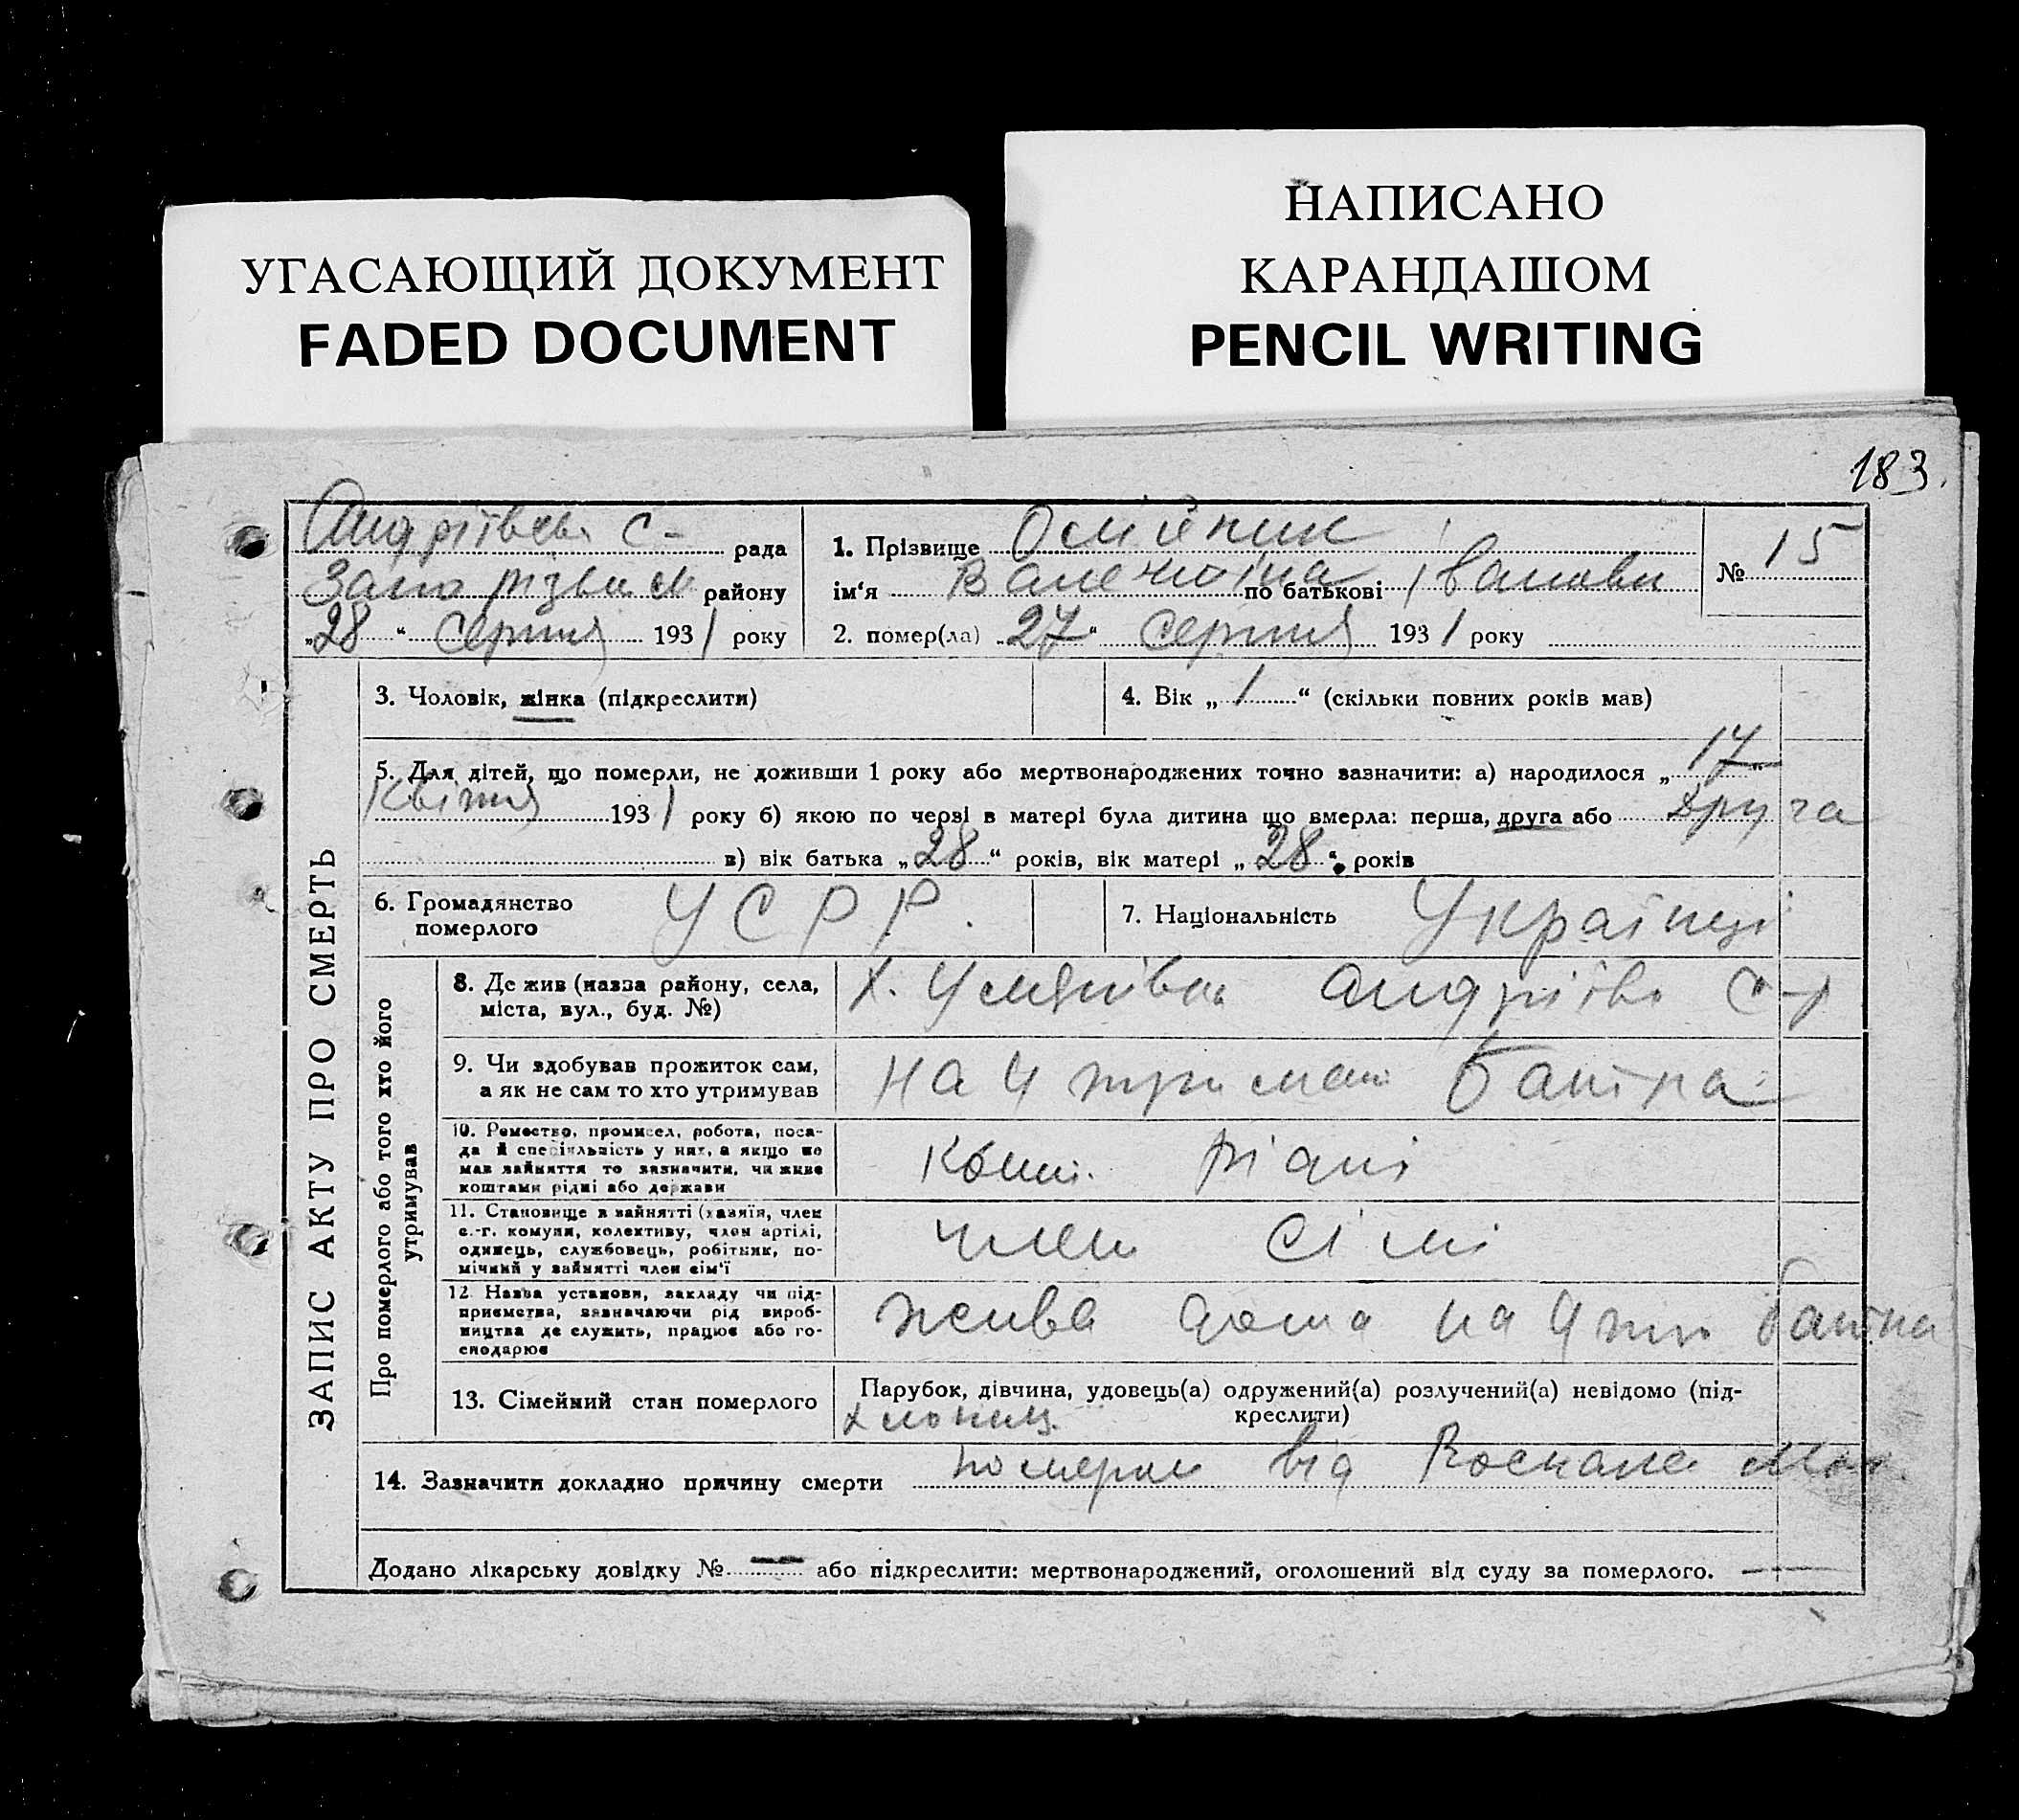 УГАСАЮЩИЙ ДОКУМЕНТ
FADED DOCUMENT
НАПИСАНО
КАРАНДАШОМ
PENCIL WRITING
183.
Андріївськ С- рада
Запорізьк р. району
„28“ серпня 1931 року
1. Прізвище Осійник
ім‘я Валентіна по батькові Івановн
2. помер(ла) „27“ серпня 1931 року
№ 15
ЗАПИС АКТУ ПРО СМЕРТЬ
3. Чоловік, жінка (підкреслити)
4. Вік „1“ (скільки повних років мав)
5. Для дітей, що померли, не доживши 1 року або мертвонароджених точно зазначити: а) народилося „17“
Квітня 1931 року б) якою по черзі в матері була дитина що вмерла: перша, друга або друга
в) вік батька „28“ років, вік матері „28“ років
6. Громадянство
померлого
УСРР.
7. Національність Українці
Про померлого або того хто його
утримував
8. Де жив (назва району, села,
міста, вул., буд. №)
х. Андріїво С-р
9. Чи здобував прожиток сам,
а як не сам то хто утримував
на утриман батька
10. Ремество, промисел, робота, поса-
да й спеціяльність у них, а якщо не
мав зайняття то зазначити, чи живе
коштами рідні або держави
кошт. рідні
11. Становище в зайнятті (хазяїн, член
с.-г. комуни, колективу, член артілі,
одинець, службовець, робітник, по-
мічний у зайнятті член сім‘ї
член сімі
12. Назва установи, закладу чи під-
приємства, зазначаючи рід вироб-
ництва де служить, працює або го-
сподарює
живе дома на утр батька
13. Сімейний стан померлого
Парубок, дівчина, удовець(а) одружений(а) розлучений(а) невідомо (під-
креслити)
хлопець
14. Зазначити докладно причину смерти помер від
Додано лікарську довідку № — або підкреслити: мертвонароджений, оголошений від суду за померлого. —